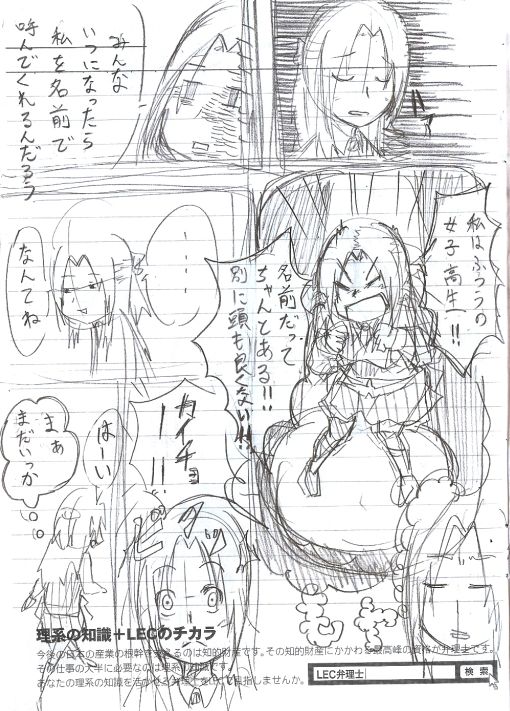 みんな
いつになったら
私を名前で
呼んでくれるんだろう
私はふつうの
女子高生!!
名前だって
ちゃんとある!!
別に頭も良くないわ
‥‥‥
なんてね
カイチョー!!
ピタ
はーい
まぁ
まだいっか
理系の知識+LECのチカラ
今後の日本の産業の根幹を支えるのは知的財産です。その知的財産にかかわる最高峰の資格が弁理士です。
その仕事の大半に必要なのは理系の知識です。
LEC弁理士
検索